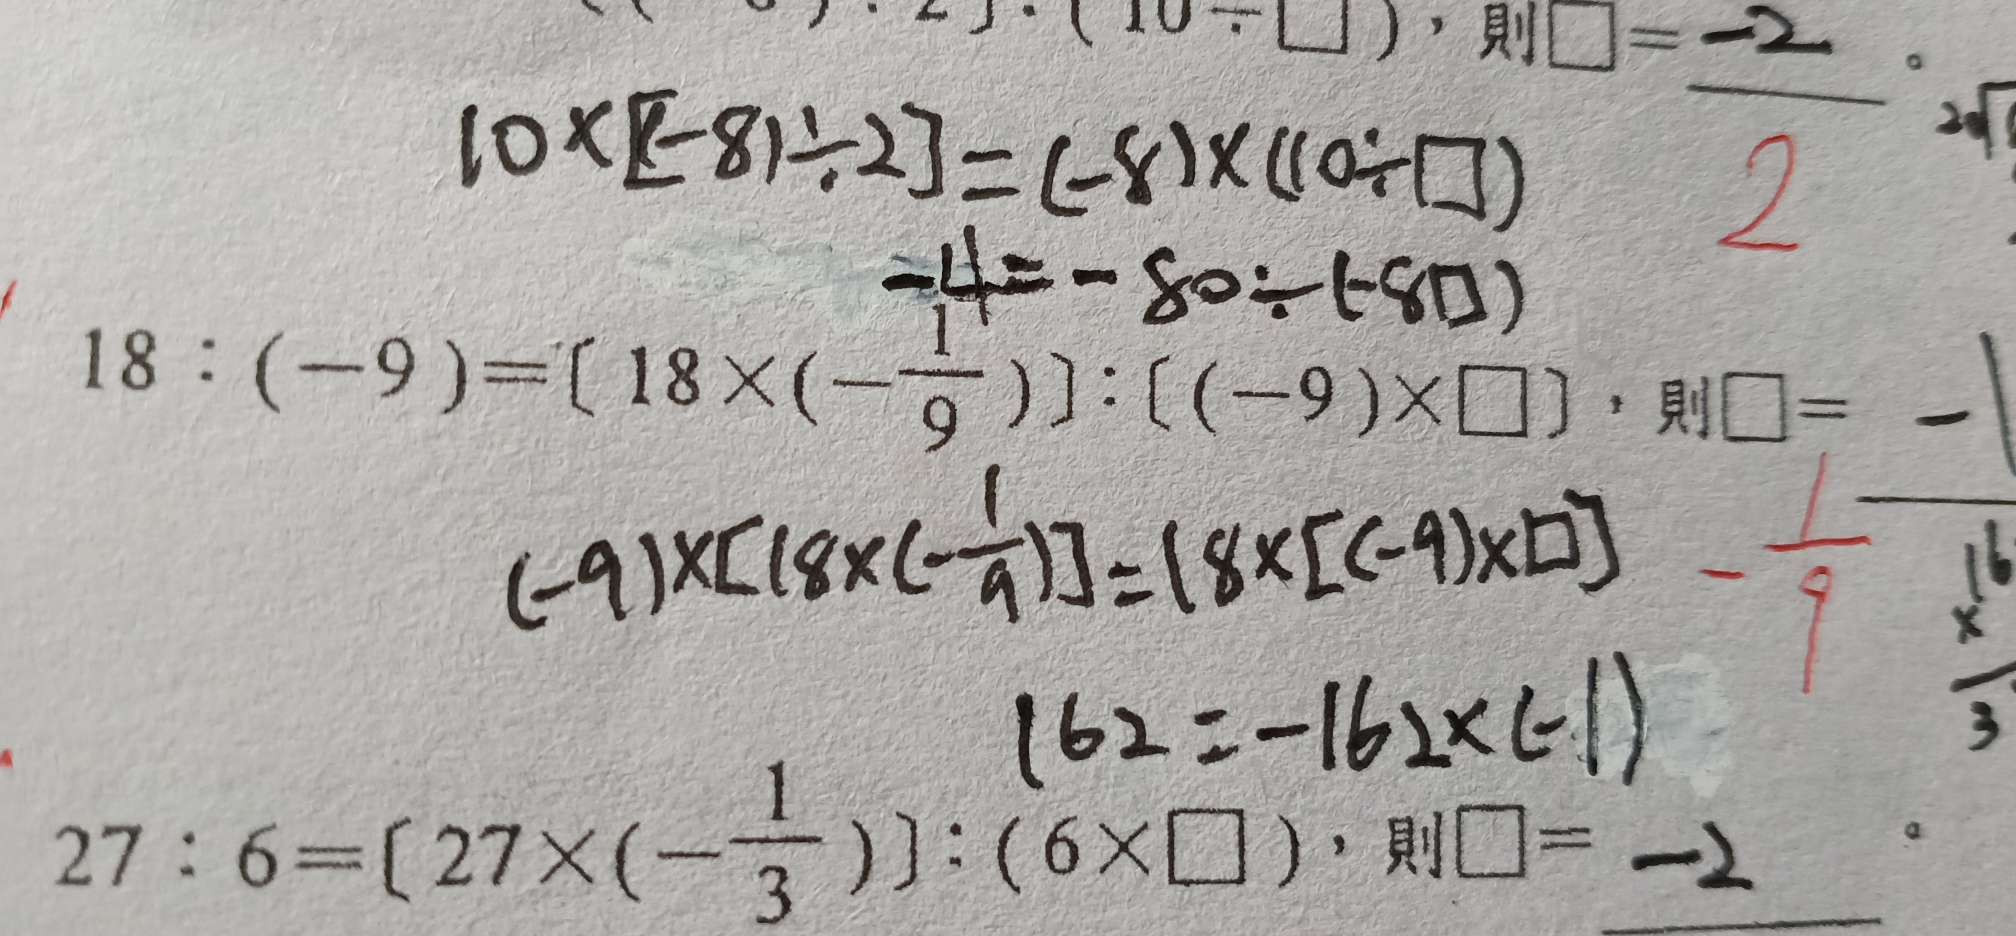 2 ] : ( 10 ÷ □ ) , 則 □ = -2 。
10×[(-8)÷2]=(-8)×(10÷□)
2
-4=-80÷(-8□)
18 : (-9)=[18×(-1/9)] : [(-9)×□] , 則□= -1
(-9)×[18×(-1/9)]=18×[(-9)×□]
-1/9
162=-162×(-1)
27 : 6=[27×(-1/3)] : (6×□) , 則□= -2 。